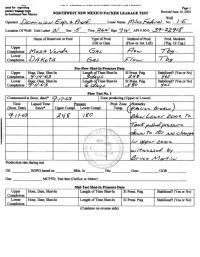 Page 1
Revised June 10, 2003
NORTHWEST NEW MEXICO PACKER-LEAKAGE TEST
Operator Dominion Exp. & Prod. Lease Name Federal Well No.
Location Of Well: Unit Letter N Sec 5 Twp 26N Rge API # 30-
Name of Reservoir or Pool Type of Prod. Method of Prod. Prod. Medium
(Oil or Gas) (Flow or Art. Lift) (Tbg. Or Csg.)
Upper
Completion Mesa Verde Gas Flow Tbg
Lower
Completion DAKOTA Gas Flow Tbg
Pre-Flow Shut-In Pressure Data
Upper Hour, Date, Shut-In Length of Time Shut-In SI Press. Psig Stabilized? (Yes or No)
Completion
Lower Hour, Date, Shut-In Length of Time Shut-In SI Press. Psig Stabilized? (Yes or No)
Completion
Flow Test No. 1
Commenced at (hour, date)* Zone producing (Upper or Lower):
Time Lapsed Time Pressure Prod. Zone Remarks
(Hour, Date) Since* Upper Compl. Lower Compl. Temp.
9-17-03 248 180 Blew Lower Zone To
pulled pressure
down To no change
in upper zone.
witnessed by
Bruce Martin
Production rate during test
Oil: BOPD based on Bbls. In Hrs. Grav. GOR
Gas MCFPD; Test thru (Orifice or Meter)
Mid-Test Shut-In Pressure Data
Upper Hour, Date, Shut-In Length of Time Shut-In SI Press. Psig Stabilized? (Yes or No)
Completion
Lower Hour, Date, Shut-In Length of Time Shut-In SI Press. Psig Stabilized? (Yes or No)
Completion
(Continue on reverse side)